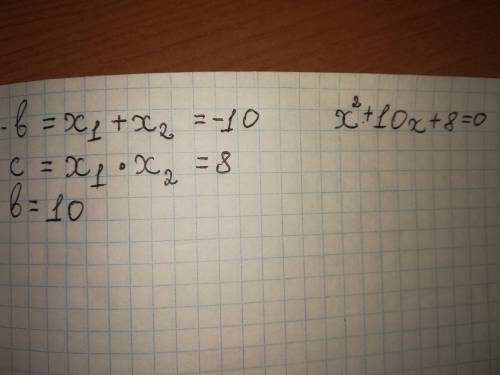 -b = x₁ + x₂ = -10
x² + 10x + 8 = 0
c = x₁ • x₂ = 8
b = 10